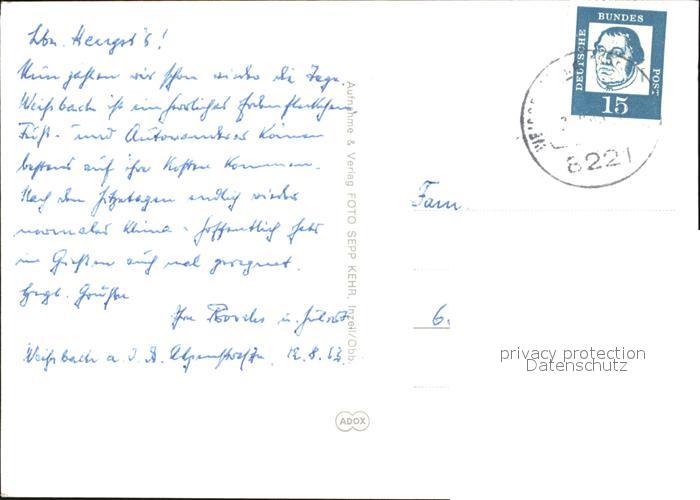 Lbn. Hengst's!
Nun zählen wir schon wieder die Tage.
Weißbach ist ein herrliches Erdenfleckchen.
Fuß- und Autowanderer können
bestens auf ihre Kosten kommen.
Nach den Hitzetagen endlich wieder
normales Klima - hoffentlich hats
in Gießen auch mal geregnet.
Herzl. Grüße
Ihre u.
Weißbach a. d. D. Alpenstraße, 12.8.63.
Aufnahme & Verlag FOTO SEPP KEHR, Inzell/Obb.
ADOX
DEUTSCHE BUNDES POST
15
8221
Fam.
6.
privacy protection
Datenschutz